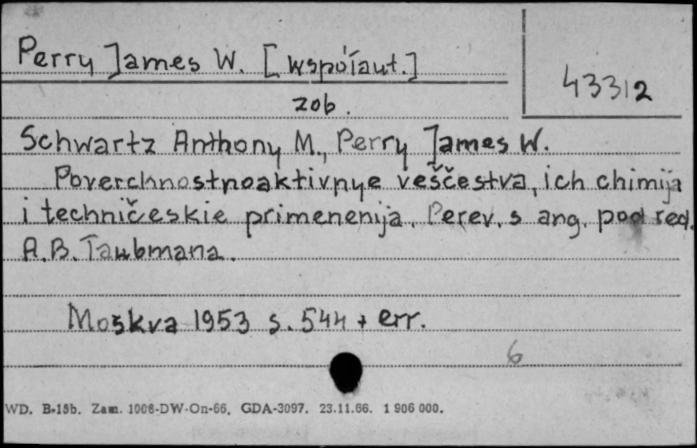 Perry James W. [współaut.]
43312
zob.
Schwartz Anthony M., Perry James W.
Poverchnostnoaktivnye veščestva, ich chimija
i techničeskie primenenija. Perev. s ang. pod red.
A.B. Taubmana.
Moskva 1953 s. 544 + err.
6
WD. B-15b. Zam. 1008-DW-On-66. GDA-3097. 23.11.66. 1 906 000.